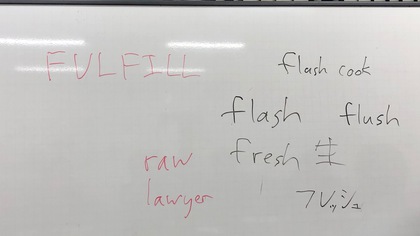 FULFILL
flash cook
flash flush
fresh 生
raw
lawyer
フレッシュ